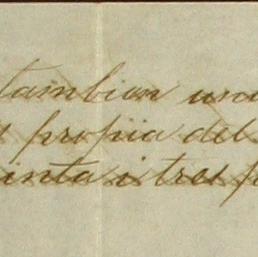 tambien una
propiia del
inta i tres